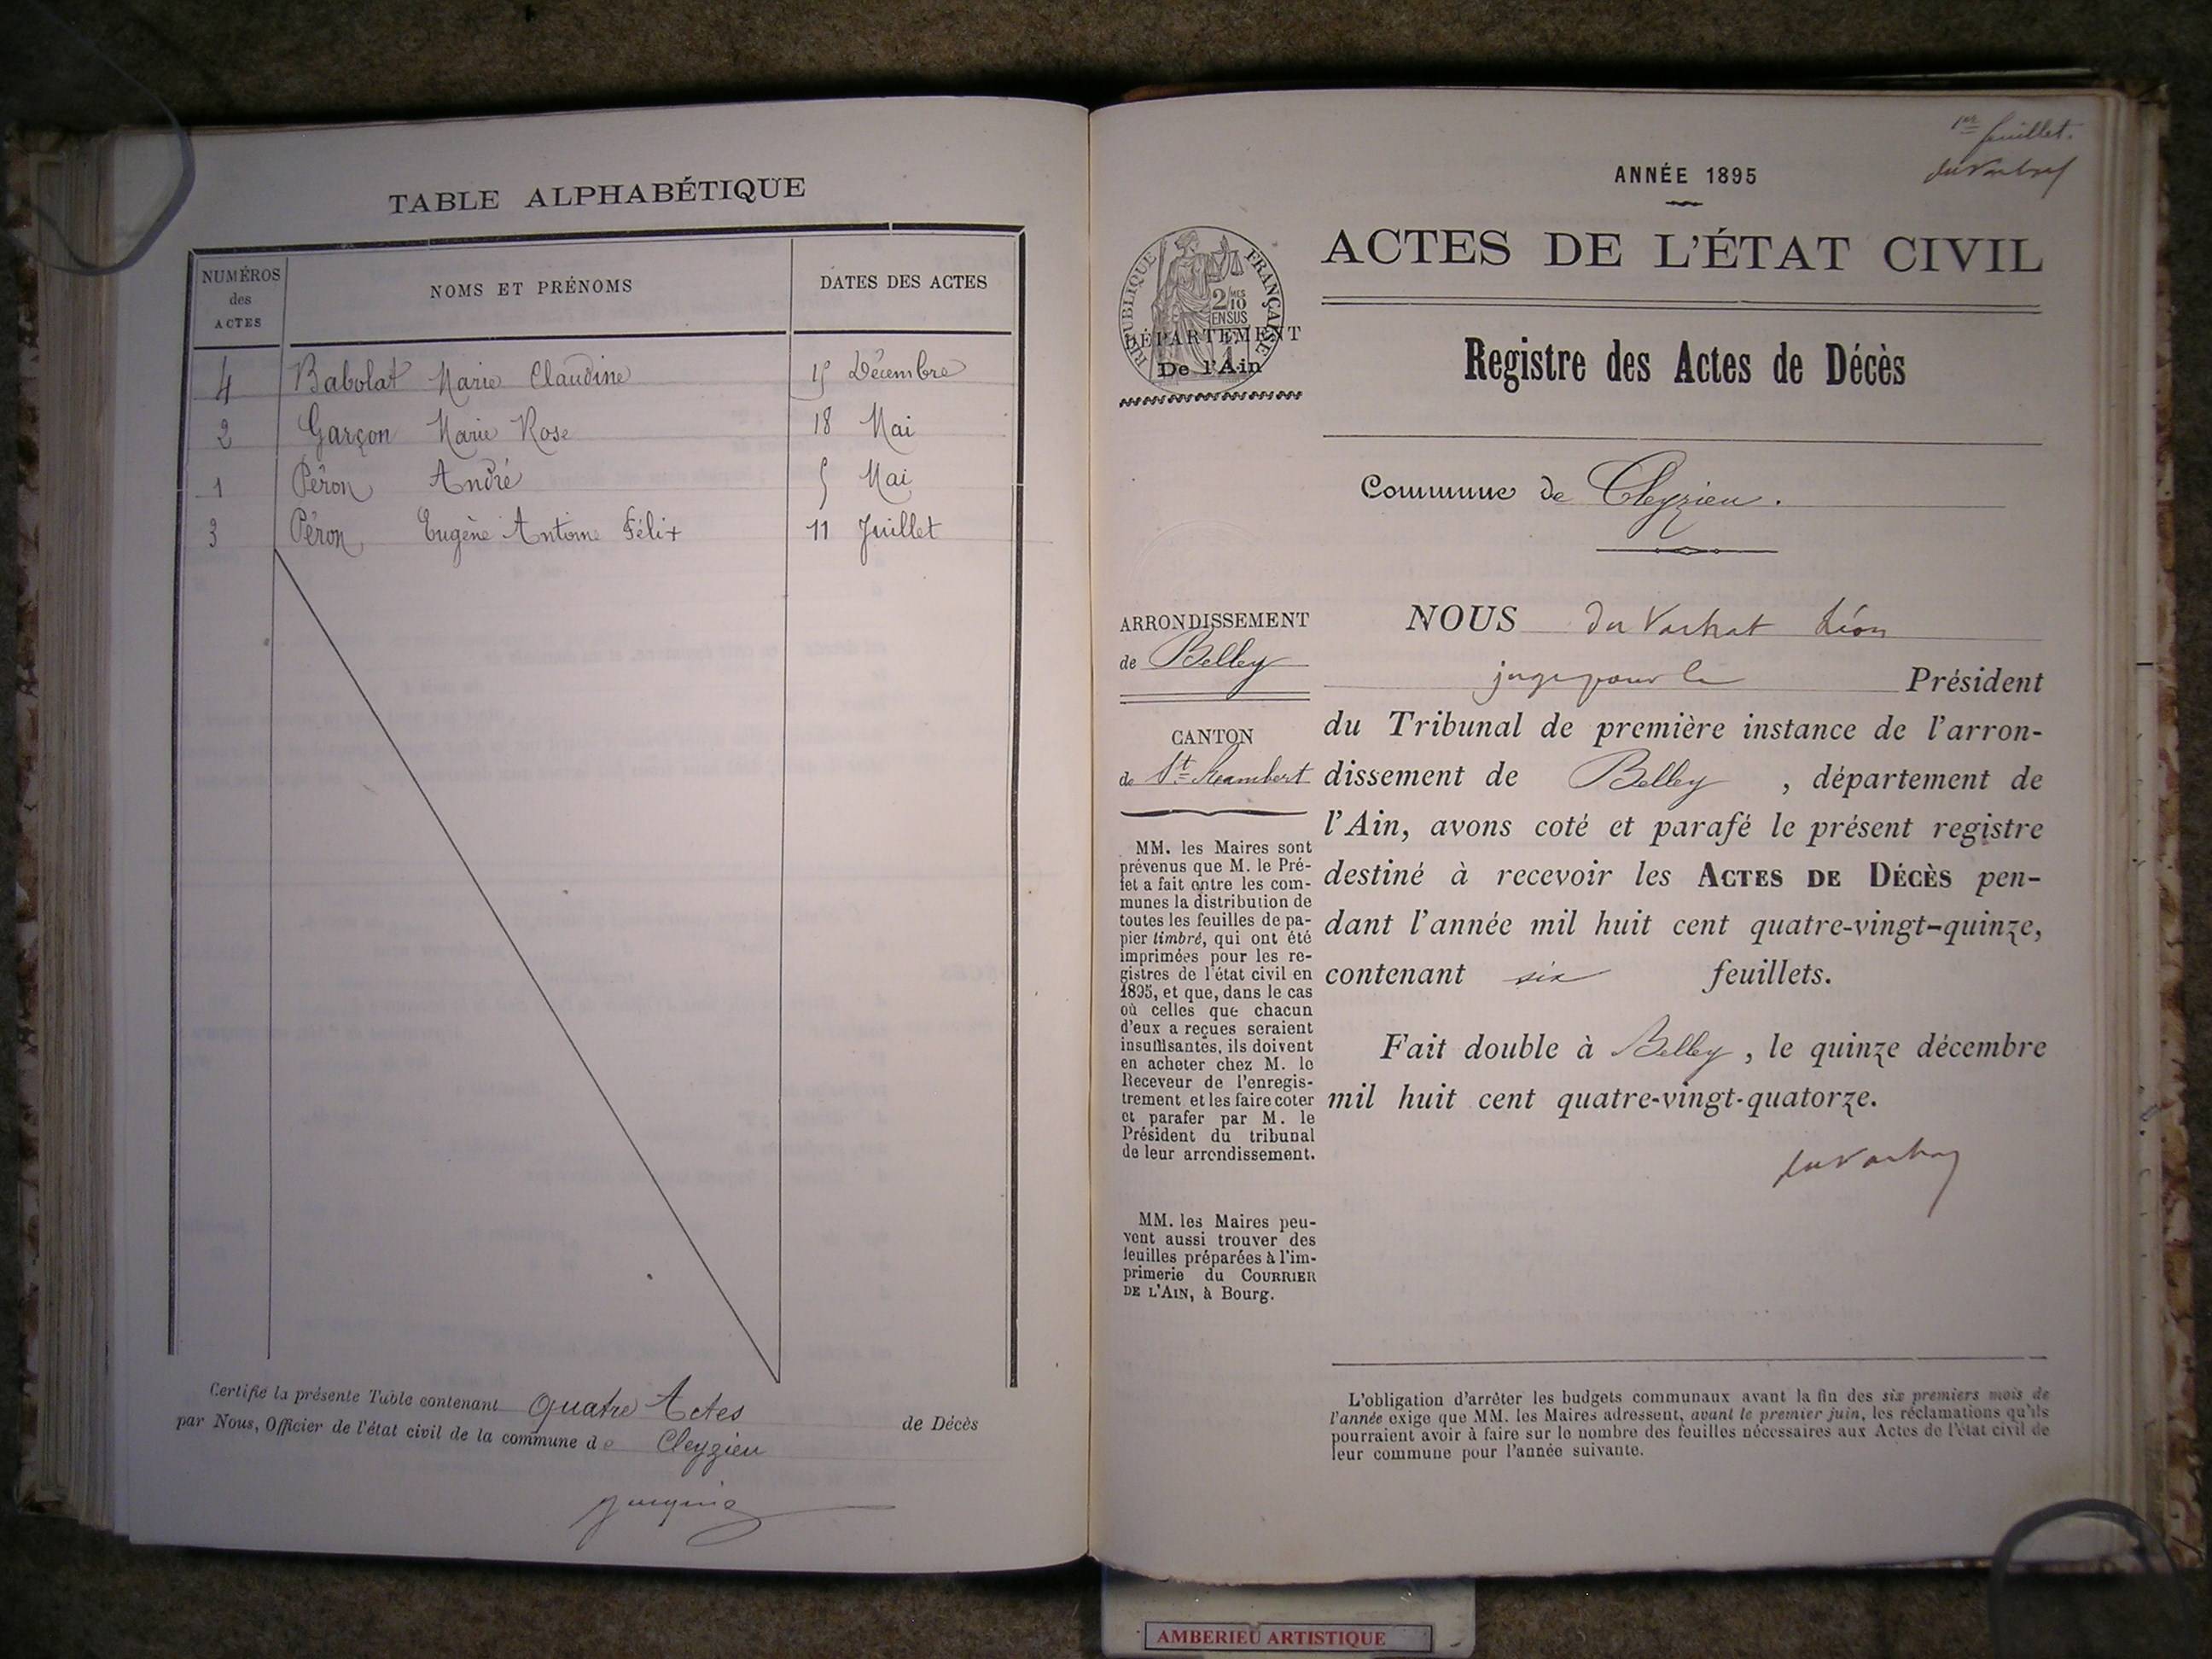 TABLE ALPHABÉTIQUE
NUMÉROS des ACTES
NOMS ET PRÉNOMS
DATES DES ACTES
4 Babolat Marie Claudine 15 Décembre
2 Garçon Marie Rose 18 Mai
1 Péron André 5 Mai
3 Péron Eugène Antoine Félix 11 Juillet
Certifié la présente Table contenant Quatre Actes de Décès
par Nous, Officier de l'état civil de la commune de Cleyzieu
1er feuillet.
ANNÉE 1895
ACTES DE L'ÉTAT CIVIL
RÉPUBLIQUE FRANÇAISE
2/10 MES
EN SUS
DÉPARTEMENT
De l'Ain
Registre des Actes de Décès
Commune de Cleyzieu.
ARRONDISSEMENT
de Belley
CANTON
de St Rambert
MM. les Maires sont
prévenus que M. le Pré-
fet a fait entre les com-
munes la distribution de
toutes les feuilles de pa-
pier timbré, qui ont été
imprimées pour les re-
gistres de l'état civil en
1895, et que, dans le cas
où celles que chacun
d'eux a reçues seraient
insuffisantes, ils doivent
en acheter chez M. le
Receveur de l'enregis-
trement et les faire coter
et parafer par M. le
Président du tribunal
de leur arrondissement.
MM. les Maires peu-
vent aussi trouver des
feuilles préparées à l'im-
primerie du COURRIER
DE L'AIN, à Bourg.
NOUS du Vachat Léon
juge pour le Président
du Tribunal de première instance de l'arron-
dissement de Belley, département de
l'Ain, avons coté et parafé le présent registre
destiné à recevoir les ACTES DE DÉCÈS pen-
dant l'année mil huit cent quatre-vingt-quinze,
contenant six feuillets.
Fait double à Belley, le quinze décembre
mil huit cent quatre-vingt-quatorze.
du Vachat
L'obligation d'arrêter les budgets communaux avant la fin des six premiers mois de
l'année exige que MM. les Maires adressent, avant le premier juin, les réclamations qu'ils
pourraient avoir à faire sur le nombre des feuilles nécessaires aux Actes de l'état civil de
leur commune pour l'année suivante.
AMBERIEU ARTISTIQUE